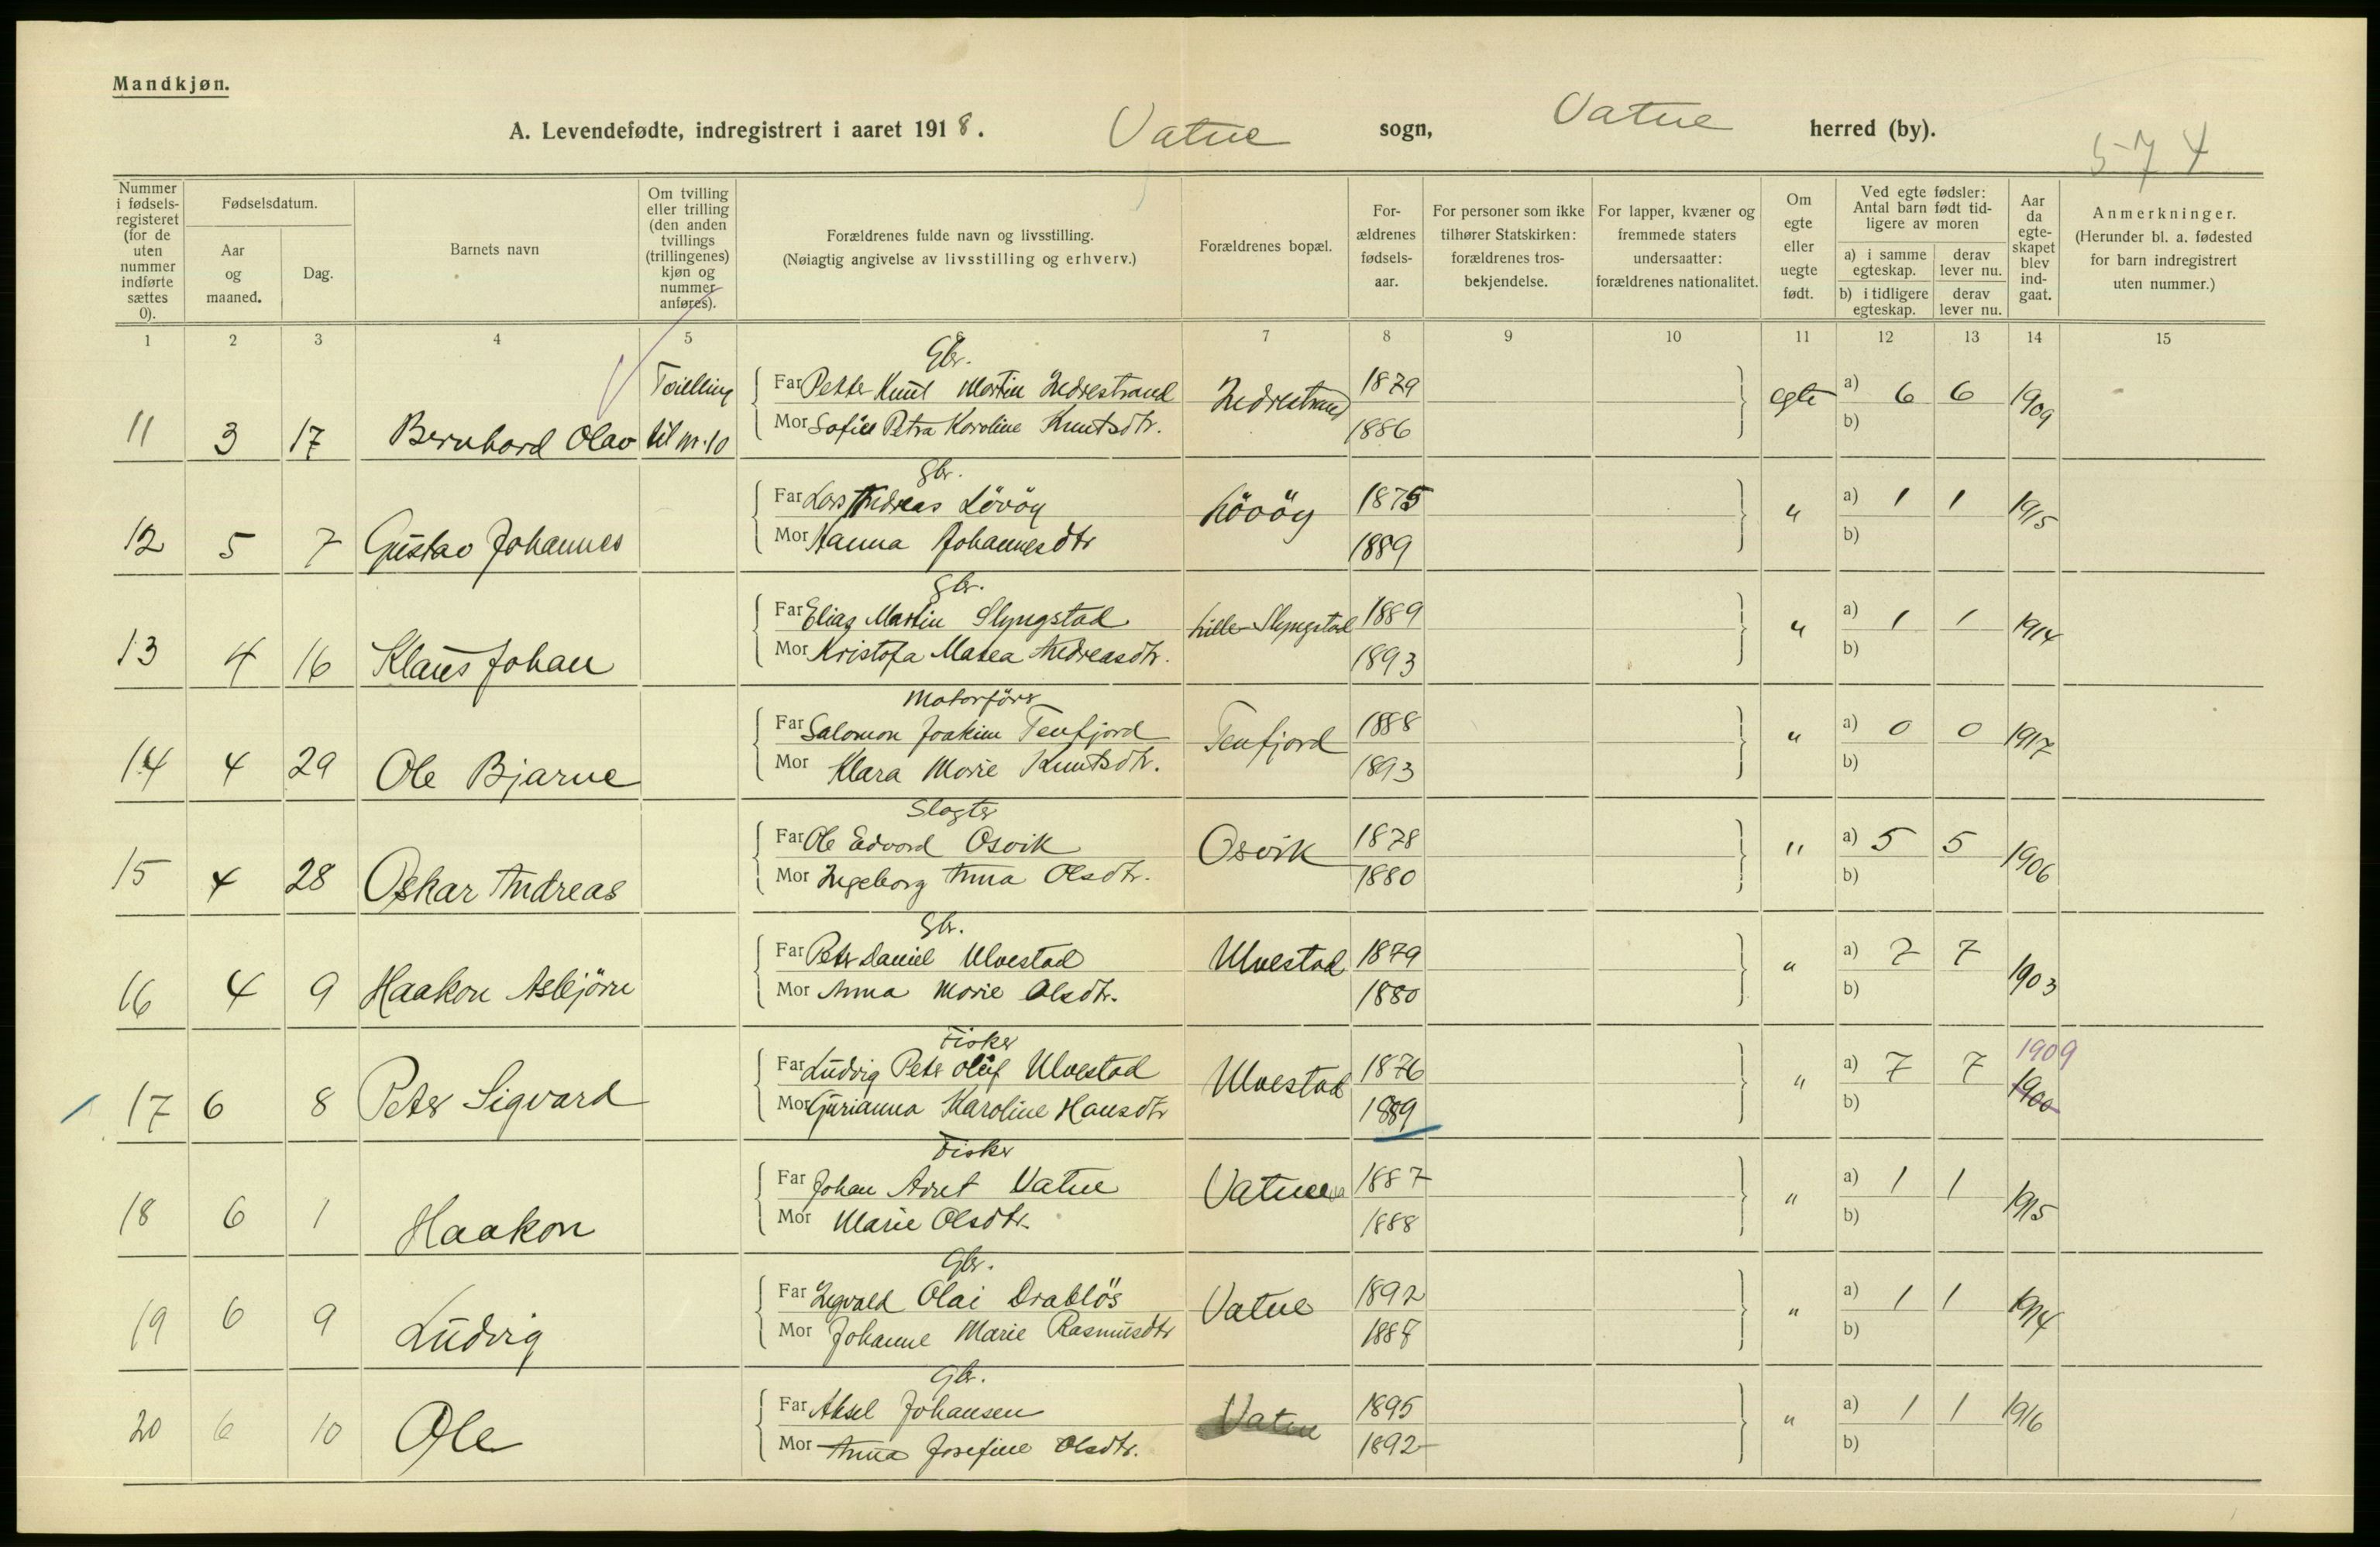 Mandkjøn.
A. Levendefødte, indregistrert i aaret 1918. Vatne sogn, Vatne herred (by).
574
Nummer i fødsels-registeret (for de uten nummer indførte sættes 0).
Fødselsdatum.
Aar og maaned.
Dag.
Barnets navn
Om tvilling eller trilling (den anden tvillings (trillingenes) kjøn og nummer anføres).
Forældrenes fulde navn og livsstilling.
(Nøiagtig angivelse av livsstilling og erhverv.)
Forældrenes bopæl.
For-ældrenes fødsels-aar.
For personer som ikke tilhører Statskirken: forældrenes tros-bekjendelse.
For lapper, kvæner og fremmede staters undersaatter: forældrenes nationalitet.
Om egte eller uegte født.
Ved egte fødsler: Antal barn født tid-ligere av moren
a) i samme egteskap.
derav lever nu.
b) i tidligere egteskap.
derav lever nu.
Aar da egte-skapet blev ind-gaat.
Anmerkninger.
(Herunder bl. a. fødested for barn indregistrert uten nummer.)
1 2 3 4 5 6 7 8 9 10 11 12 13 14 15
Gbr.
Tvilling Far Petter Knut Martin Indrestrand Indrestrand 1879 egte a) 6 6 1909
11 3 17 Bernhard Olav til nr. 10 Mor Sofie Petra Karoline Knutsdtr. 1886 b)
Gbr.
Far Lars Andreas Lövöy Lövöy 1875 " a) 1 1 1915
12 5 7 Gustav Johannes Mor Hanna Johannesdtr 1889 b)
Gbr.
Far Elias Martin Slyngstad Lille-Slyngstad 1889 " a) 1 1 1914
13 4 16 Klaus Johan Mor Kristofa Matea Andreasdtr. 1893 b)
Motorförer
Far Salomon Joakim Tenfjord Tenfjord 1888 " a) 0 0 1917
14 4 29 Ole Bjarne Mor Klara Marie Knutsdtr. 1893 b)
Slagter
Far Ole Edvard Osvik Osvik 1878 " a) 5 5 1906
15 4 28 Oskar Andreas Mor Ingeborg Anna Olsdtr. 1880 b)
Gbr.
Far Peter Daniel Ulvestad Ulvestad 1879 " a) 7 7 1903
16 4 9 Haakon Asbjörn Mor Anna Marie Olsdtr. 1880 b)
Fisker
Far Ludvig Peter Oluf Ulvestad Ulvestad 1876 " a) 7 7 1909 1900
17 6 8 Peter Sigvard Mor Gurianna Karoline Hansdtr 1889 b)
Fisker
Far Johan Arnt Vatne Vatne 1887 " a) 1 1 1915
18 6 1 Haakon Mor Marie Olsdtr. 1888 b)
Gbr.
Far Ingvald Olai Drabløs Vatne 1892 " a) 1 1 1914
19 6 9 Ludvig Mor Johanne Marie Rasmusdtr 1888 b)
Gbr.
Far Aksel Johansen Vatne 1895 " a) 1 1 1916
20 6 10 Ole Mor Anna Josefine Olsdtr. 1892 b)